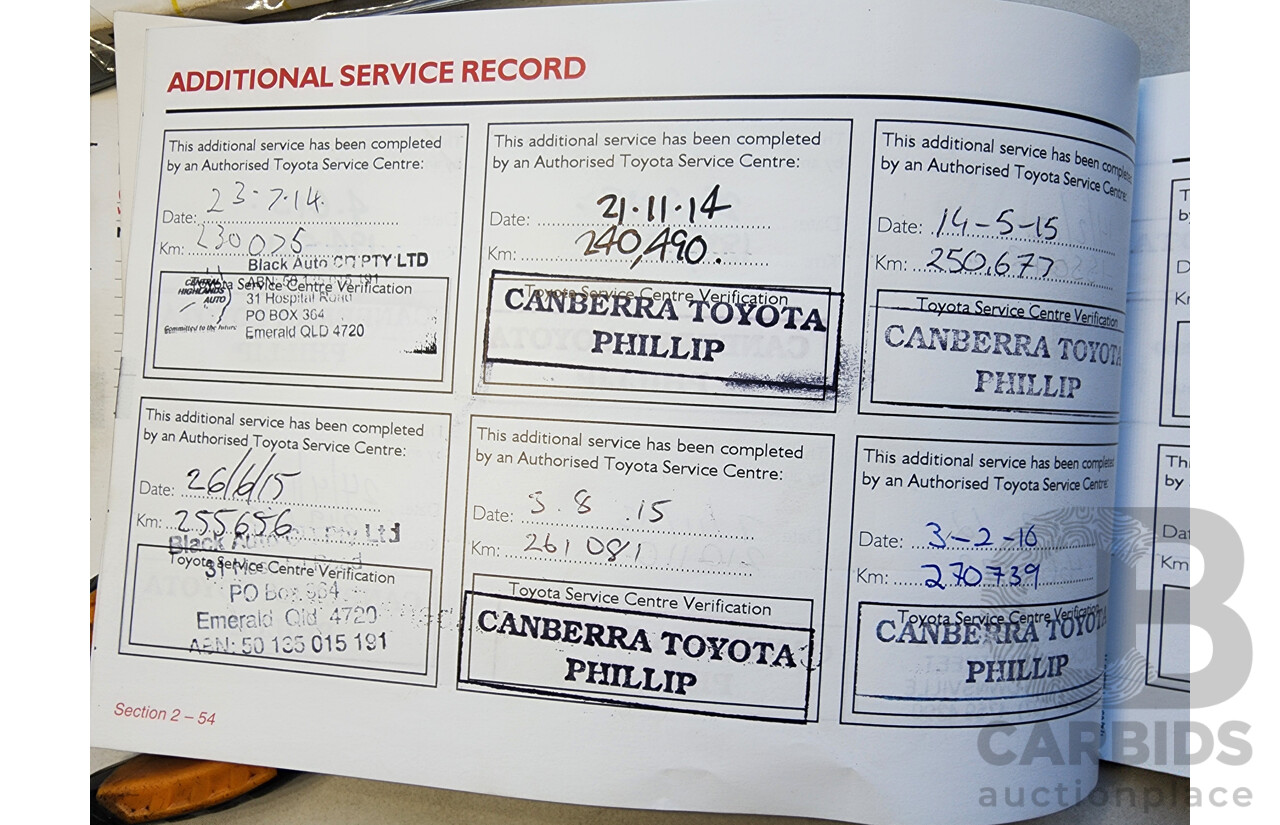 ADDITIONAL SERVICE RECORD
This additional service has been completed
by an Authorised Toyota Service Centre:
Date: 23.7.14.
Km: 230 075
Black Auto PTY LTD
Toyota Service Centre Verification
CENTRAL
HIGHLANDS
AUTO
Committed to the future
31 Hospital Road
PO BOX 364
Emerald QLD 4720
This additional service has been completed
by an Authorised Toyota Service Centre:
Date: 21.11.14
Km: 240,490.
Toyota Service Centre Verification
CANBERRA TOYOTA
PHILLIP
This additional service has been completed
by an Authorised Toyota Service Centre:
Date: 14-5-15
Km: 250,677
Toyota Service Centre Verification
CANBERRA TOYOTA
PHILLIP
This additional service has been completed
by an Authorised Toyota Service Centre:
Date: 26/6/15
Km: 255656
Black Auto Pty Ltd
Toyota Service Centre Verification
PO Box 364
Emerald Qld 4720
ABN: 50 135 015 191
This additional service has been completed
by an Authorised Toyota Service Centre:
Date: 3.8.15
Km: 261 081
Toyota Service Centre Verification
CANBERRA TOYOTA
PHILLIP
This additional service has been completed
by an Authorised Toyota Service Centre:
Date: 3-2-16
Km: 270739
Toyota Service Centre Verification
CANBERRA TOYOTA
PHILLIP
Section 2 – 54
Km
CARBIDS
auctionplace